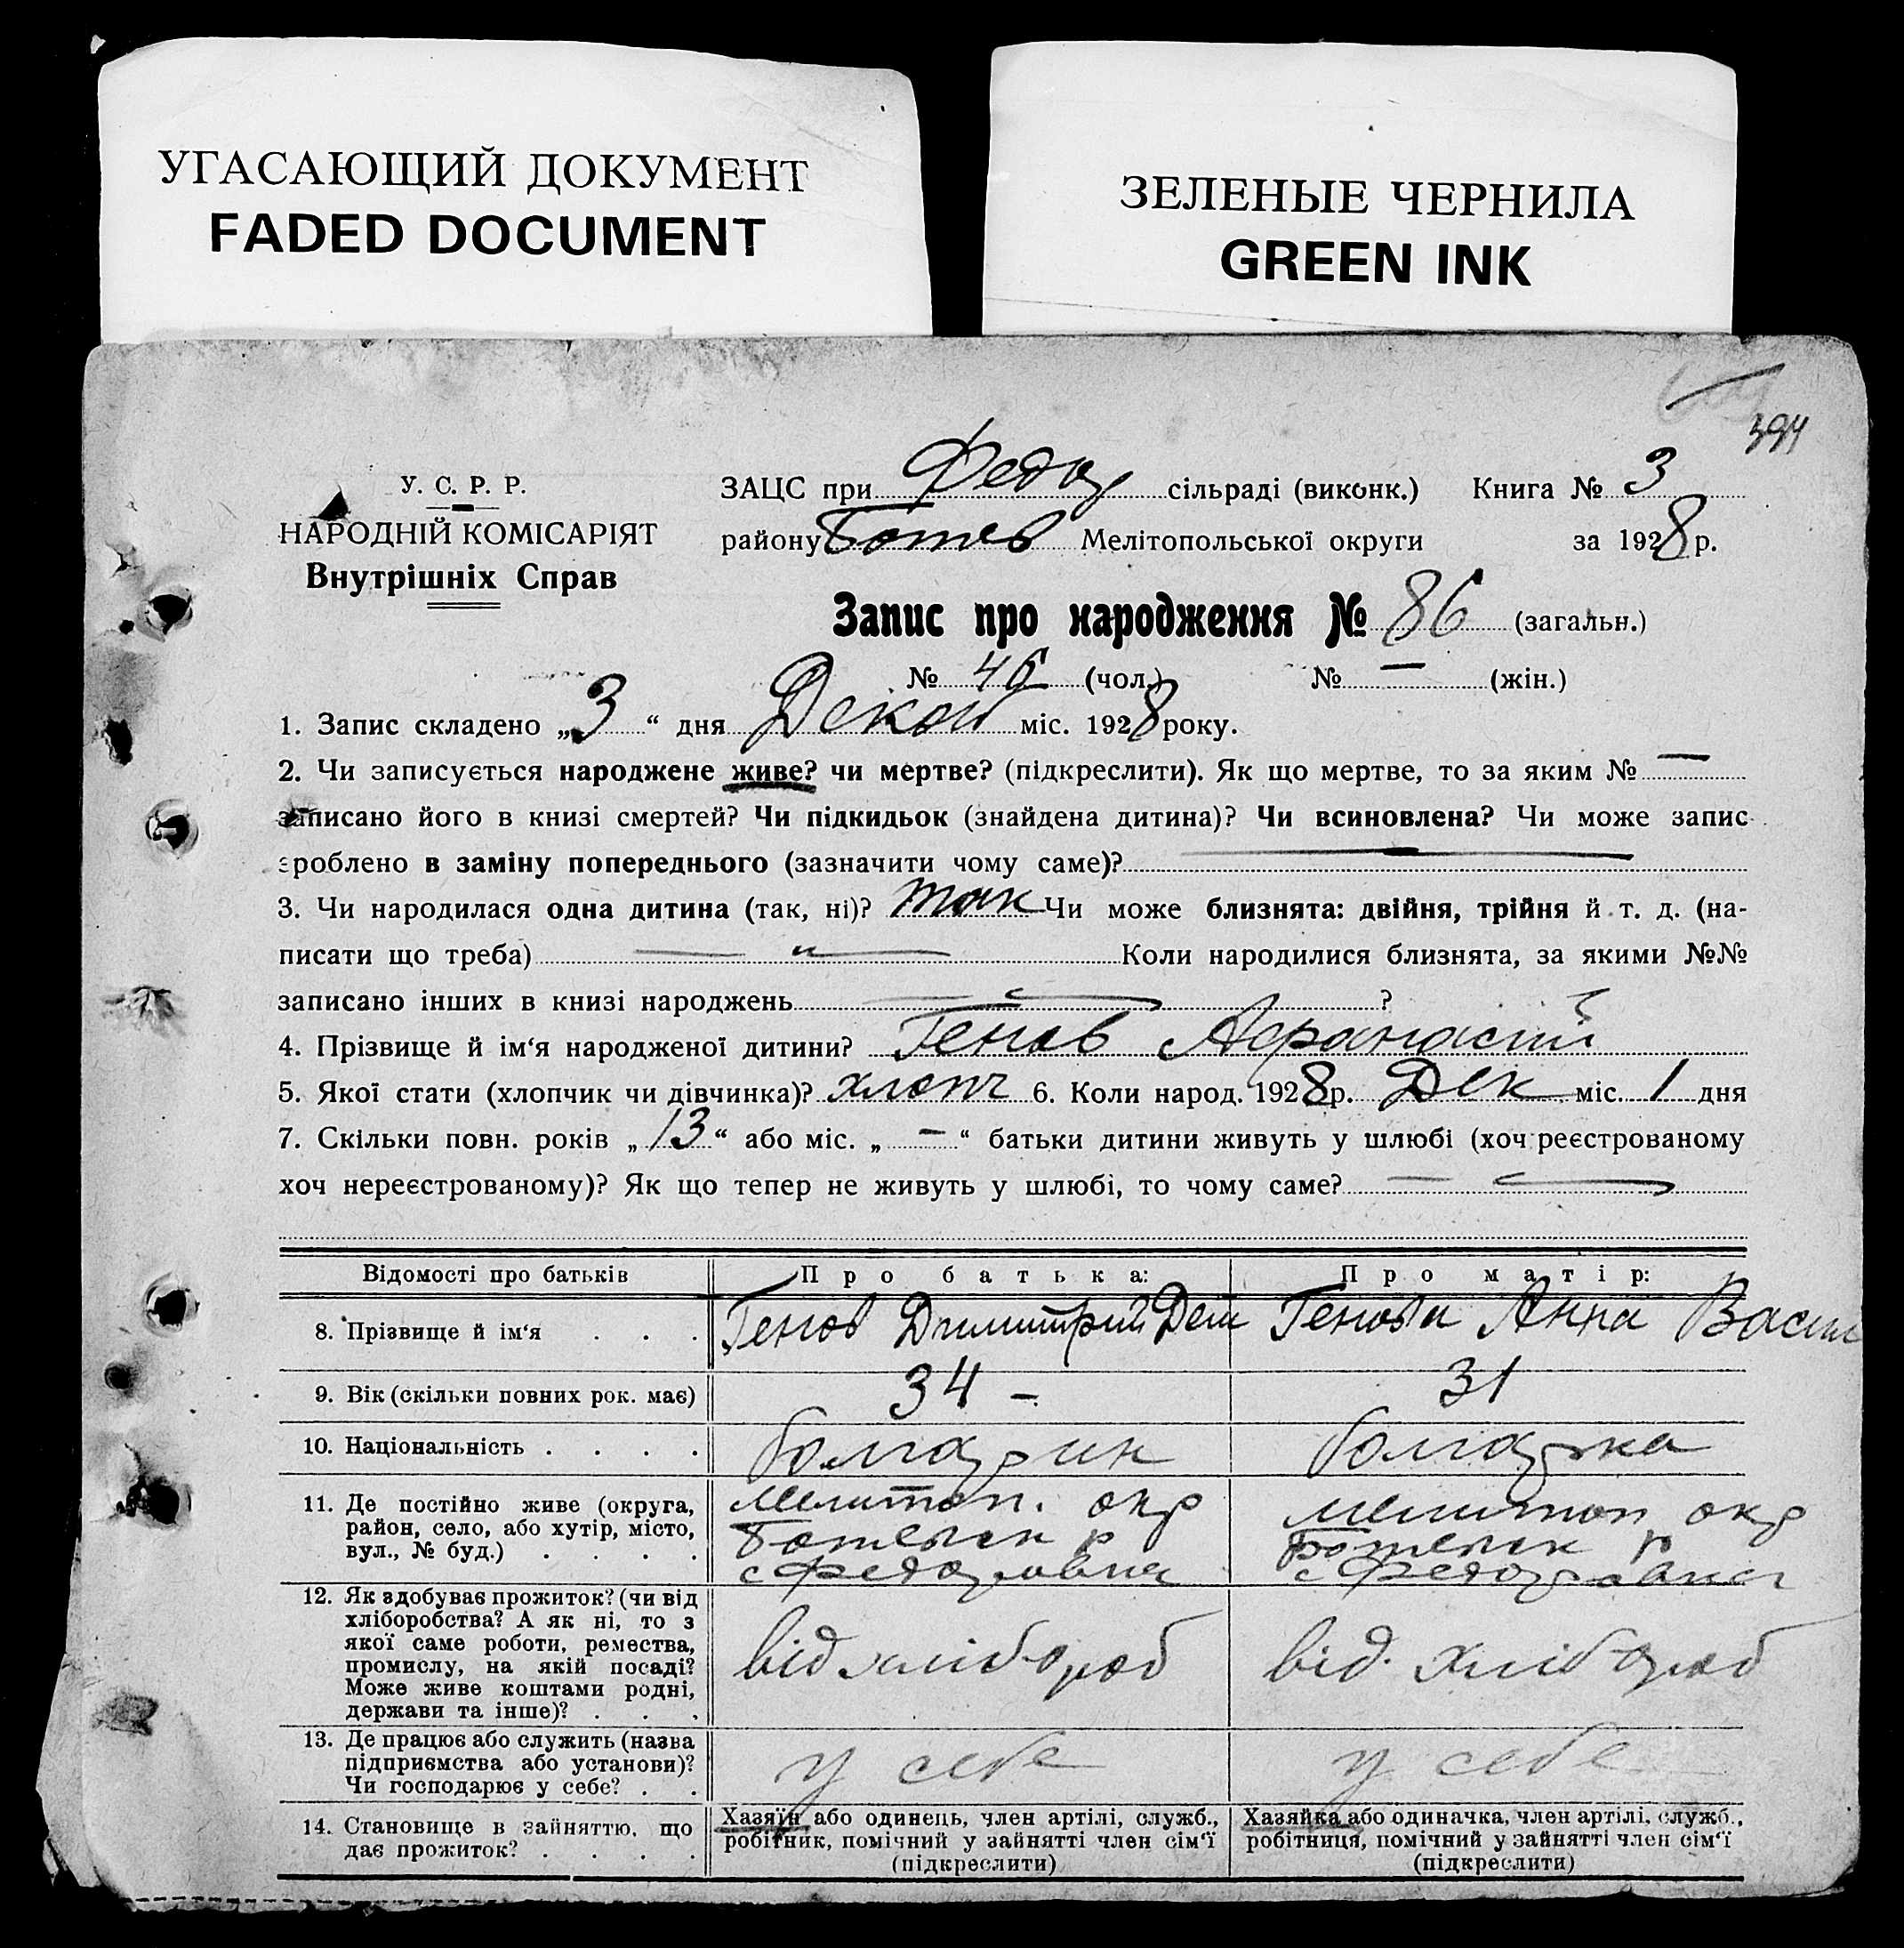 УГАСАЮЩИЙ ДОКУМЕНТ
FADED DOCUMENT
ЗЕЛЕНЫЕ ЧЕРНИЛА
GREEN INK
394
У. С. Р. Р.
НАРОДНІЙ КОМІСАРІЯТ
Внутрішніх Справ
ЗАЦС при Федор сільраді (виконк.) Книга № 3
району Ботев Мелітопольської округи за 1928 р.
Запис про народження № 86 (загальн.)
№ 46 (чол.) № — (жін.)
1. Запис складено „3“ дня міс. 1928 року.
2. Чи записується народжене живе? чи мертве? (підкреслити). Як що мертве, то за яким № —
записано його в книзі смертей? Чи підкидьок (знайдена дитина)? Чи всиновлена? Чи може запис
зроблено в заміну попереднього (зазначити чому саме)? —
3. Чи народилася одна дитина (так, ні)? так Чи може близнята: двійня, трійня й т. д. (на-
писати що треба) — „ — Коли народилися близнята, за якими №№
записано інших в книзі народжень — ?
4. Прізвище й ім‘я народженої дитини? Генов Афанасій
5. Якої стати (хлопчик чи дівчинка)? хлопч 6. Коли народ. 1928 р. Дек міс. 1 дня
7. Скільки повн. років „13“ або міс. „—“ батьки дитини живуть у шлюбі (хоч реєстрованому
хоч нереєстрованому)? Як що тепер не живуть у шлюбі, то чому саме? —
Відомості про батьків Про батька: Про матір:
8. Прізвище й ім‘я . . . Генов Димитрий Генова Анна Васил
9. Вік (скільки повних рок. має) 34 — 31
10. Національність . . . . болгарин болгарка
11. Де постійно живе (округа, Мелитоп. окр Мелитоп окр
район, село, або хутір, місто, Ботевск р Ботевск р
вул., № буд.) . . . . с Федоровка с Федоровка
12. Як здобуває прожиток? (чи від
хліборобства? А як ні, то з
якої саме роботи, ремества,
промислу, на якій посаді? від хлібороб від. хлібороб
Може живе коштами родні,
держави та інше)? . . .
13. Де працює або служить (назва
підприємства або установи)? у себе у себе
Чи господарює у себе? . .
14. Становище в зайняттю, що
дає прожиток? . . . .
Хазяїн або одинець, член артілі, служб.,
робітник, помічний у зайнятті член сім‘ї
(підкреслити)
Хазяйка або одиначка, член артілі, служб.,
робітниця, помічний у зайнятті член сім‘ї
(підкреслити)